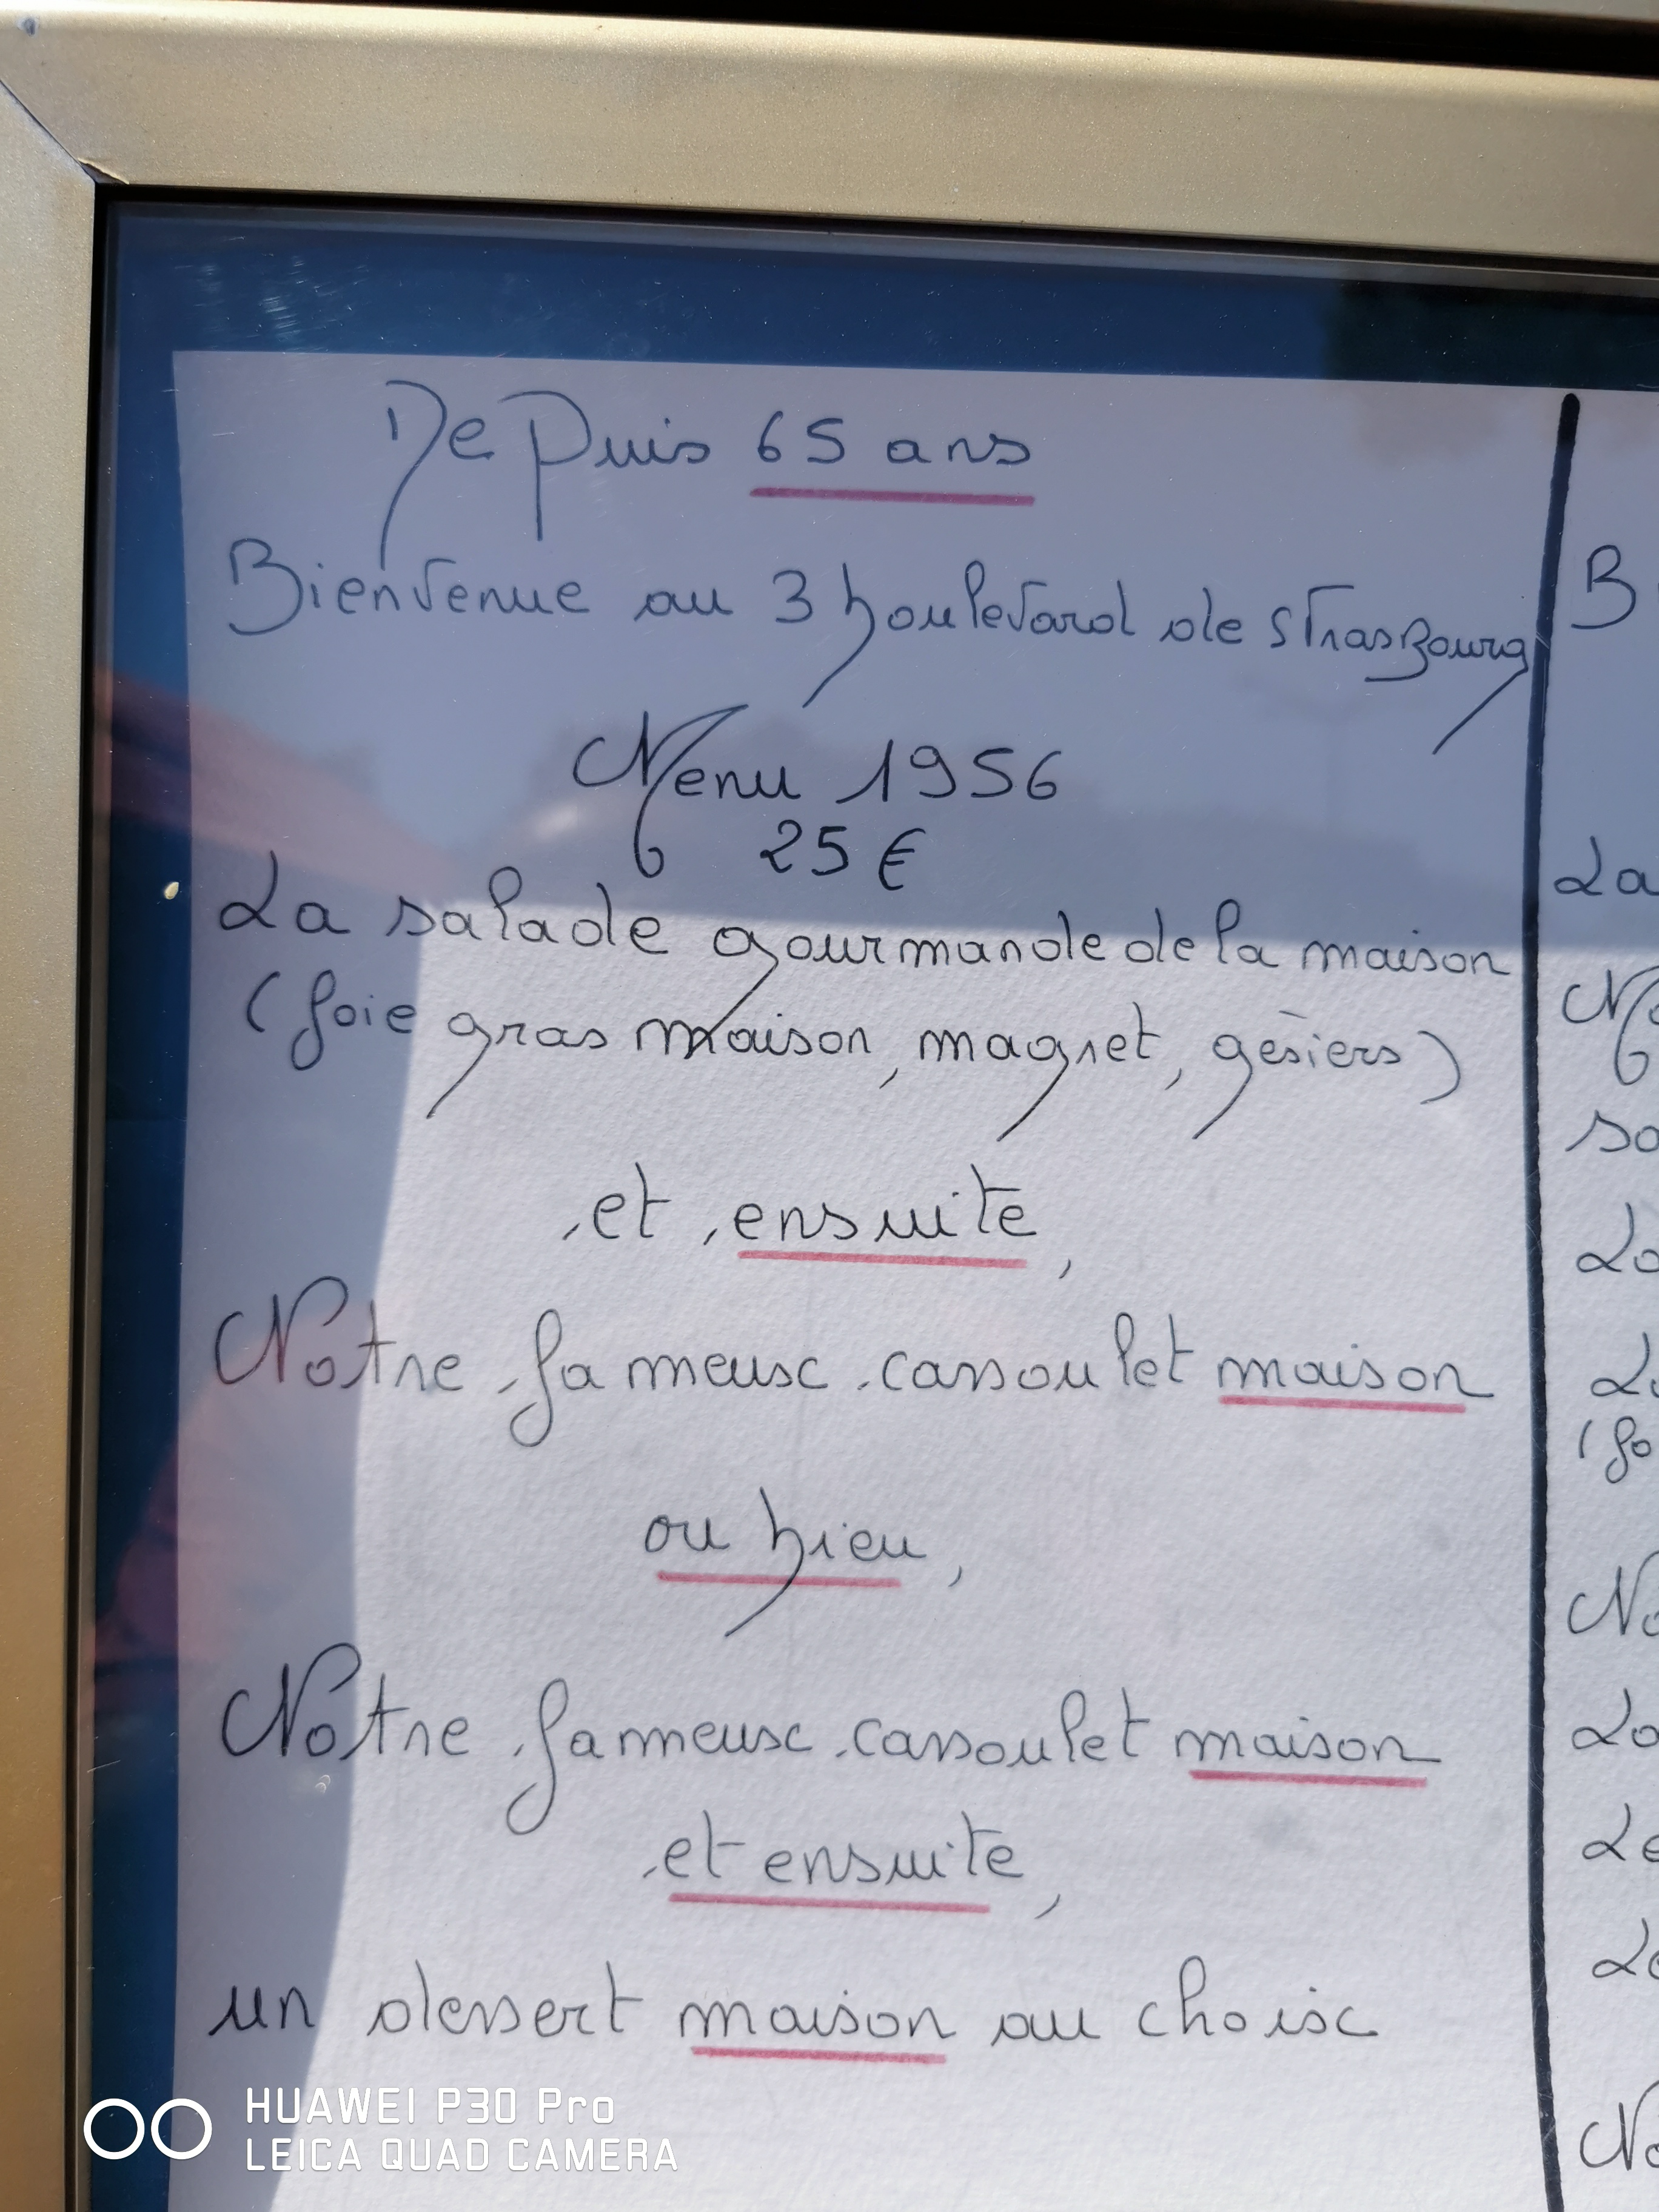 Depuis 65 ans
Bienvenue au 3 boulevard de strasBourg
Menu 1956
25 €
La salade gourmande de la maison
(foie gras maison, magret, gèsiers)
et ensuite,
Notre fameux cassoulet maison
ou bien,
Notre fameux cassoulet maison
et ensuite,
un dessert maison au choix
B
La
so
La
(fo
No
HUAWEI P30 Pro
LEICA QUAD CAMERA